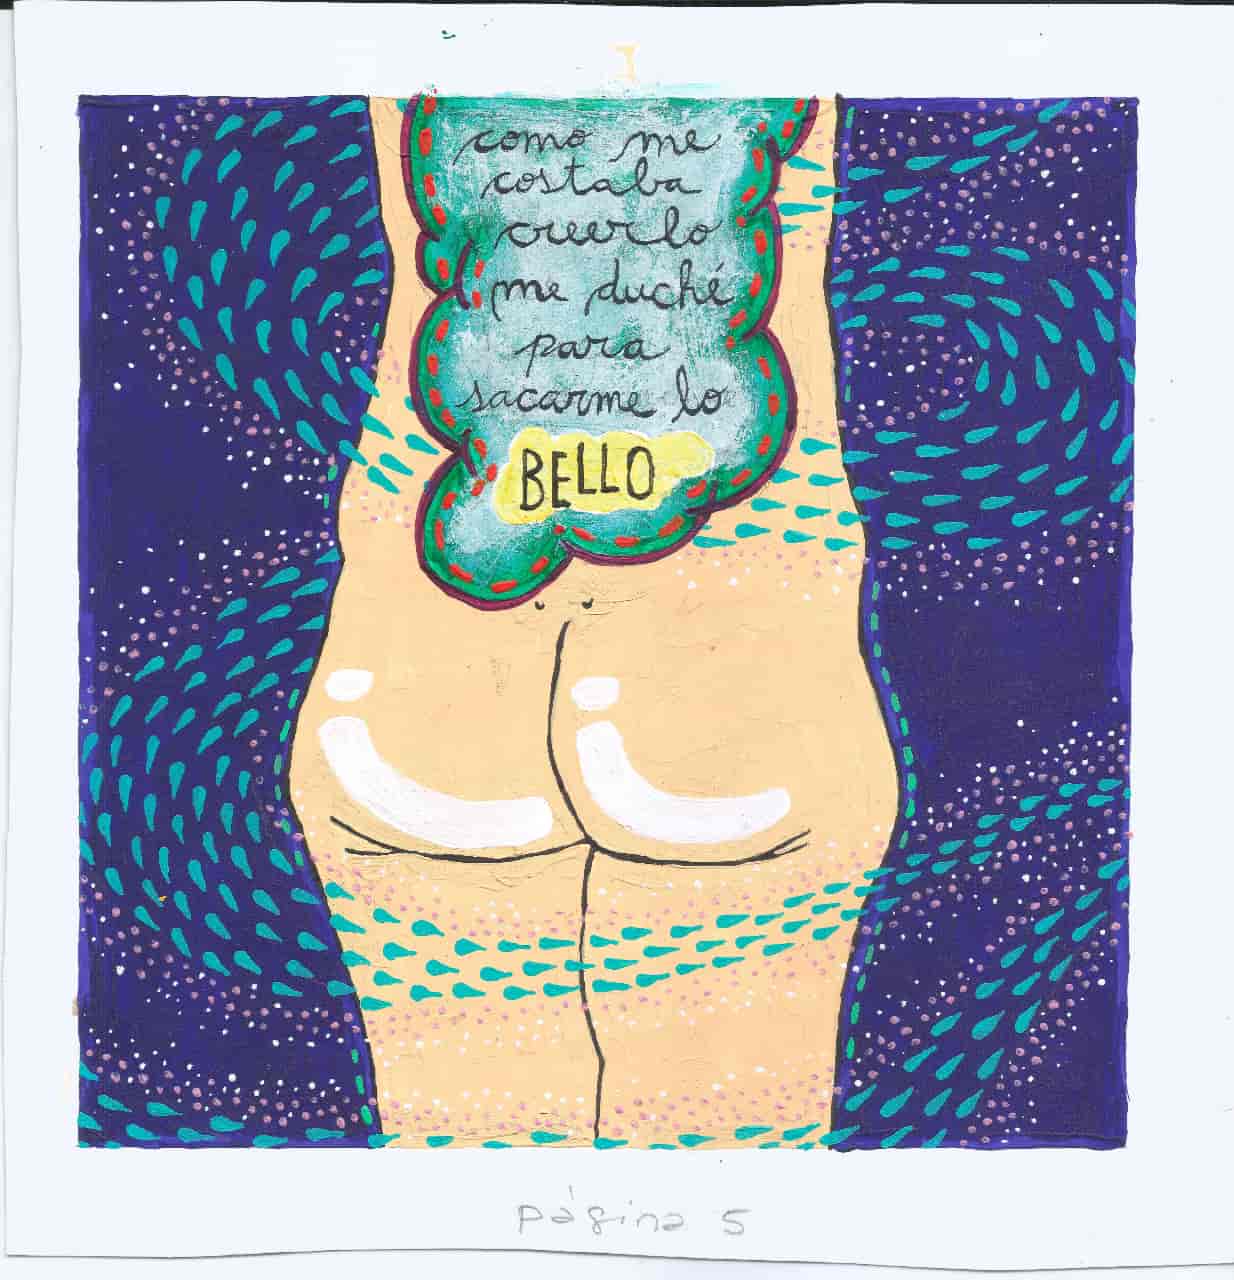 1
como me
costaba
creerlo
me duché
para
sacarme lo
BELLO
página 5